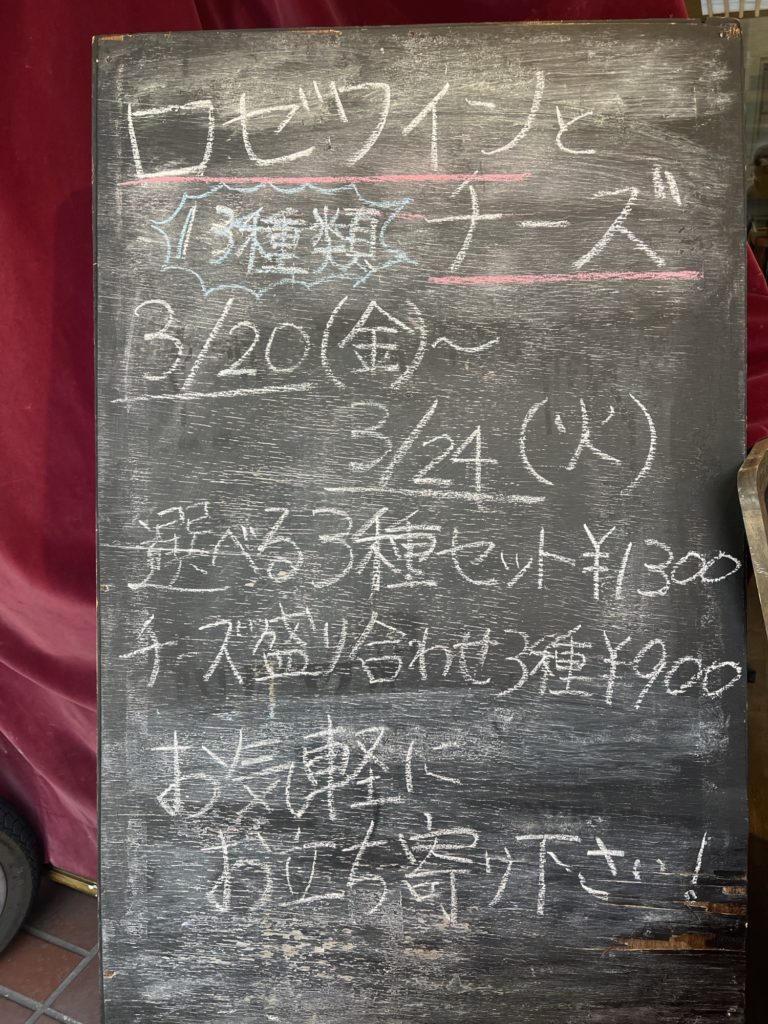 ロゼワインと
13種類 チーズ
3/20(金)~
3/24(火)
選べる3種セット¥1300
チーズ盛り合わせ3種¥900
お気軽に
お立ち寄り下さい!